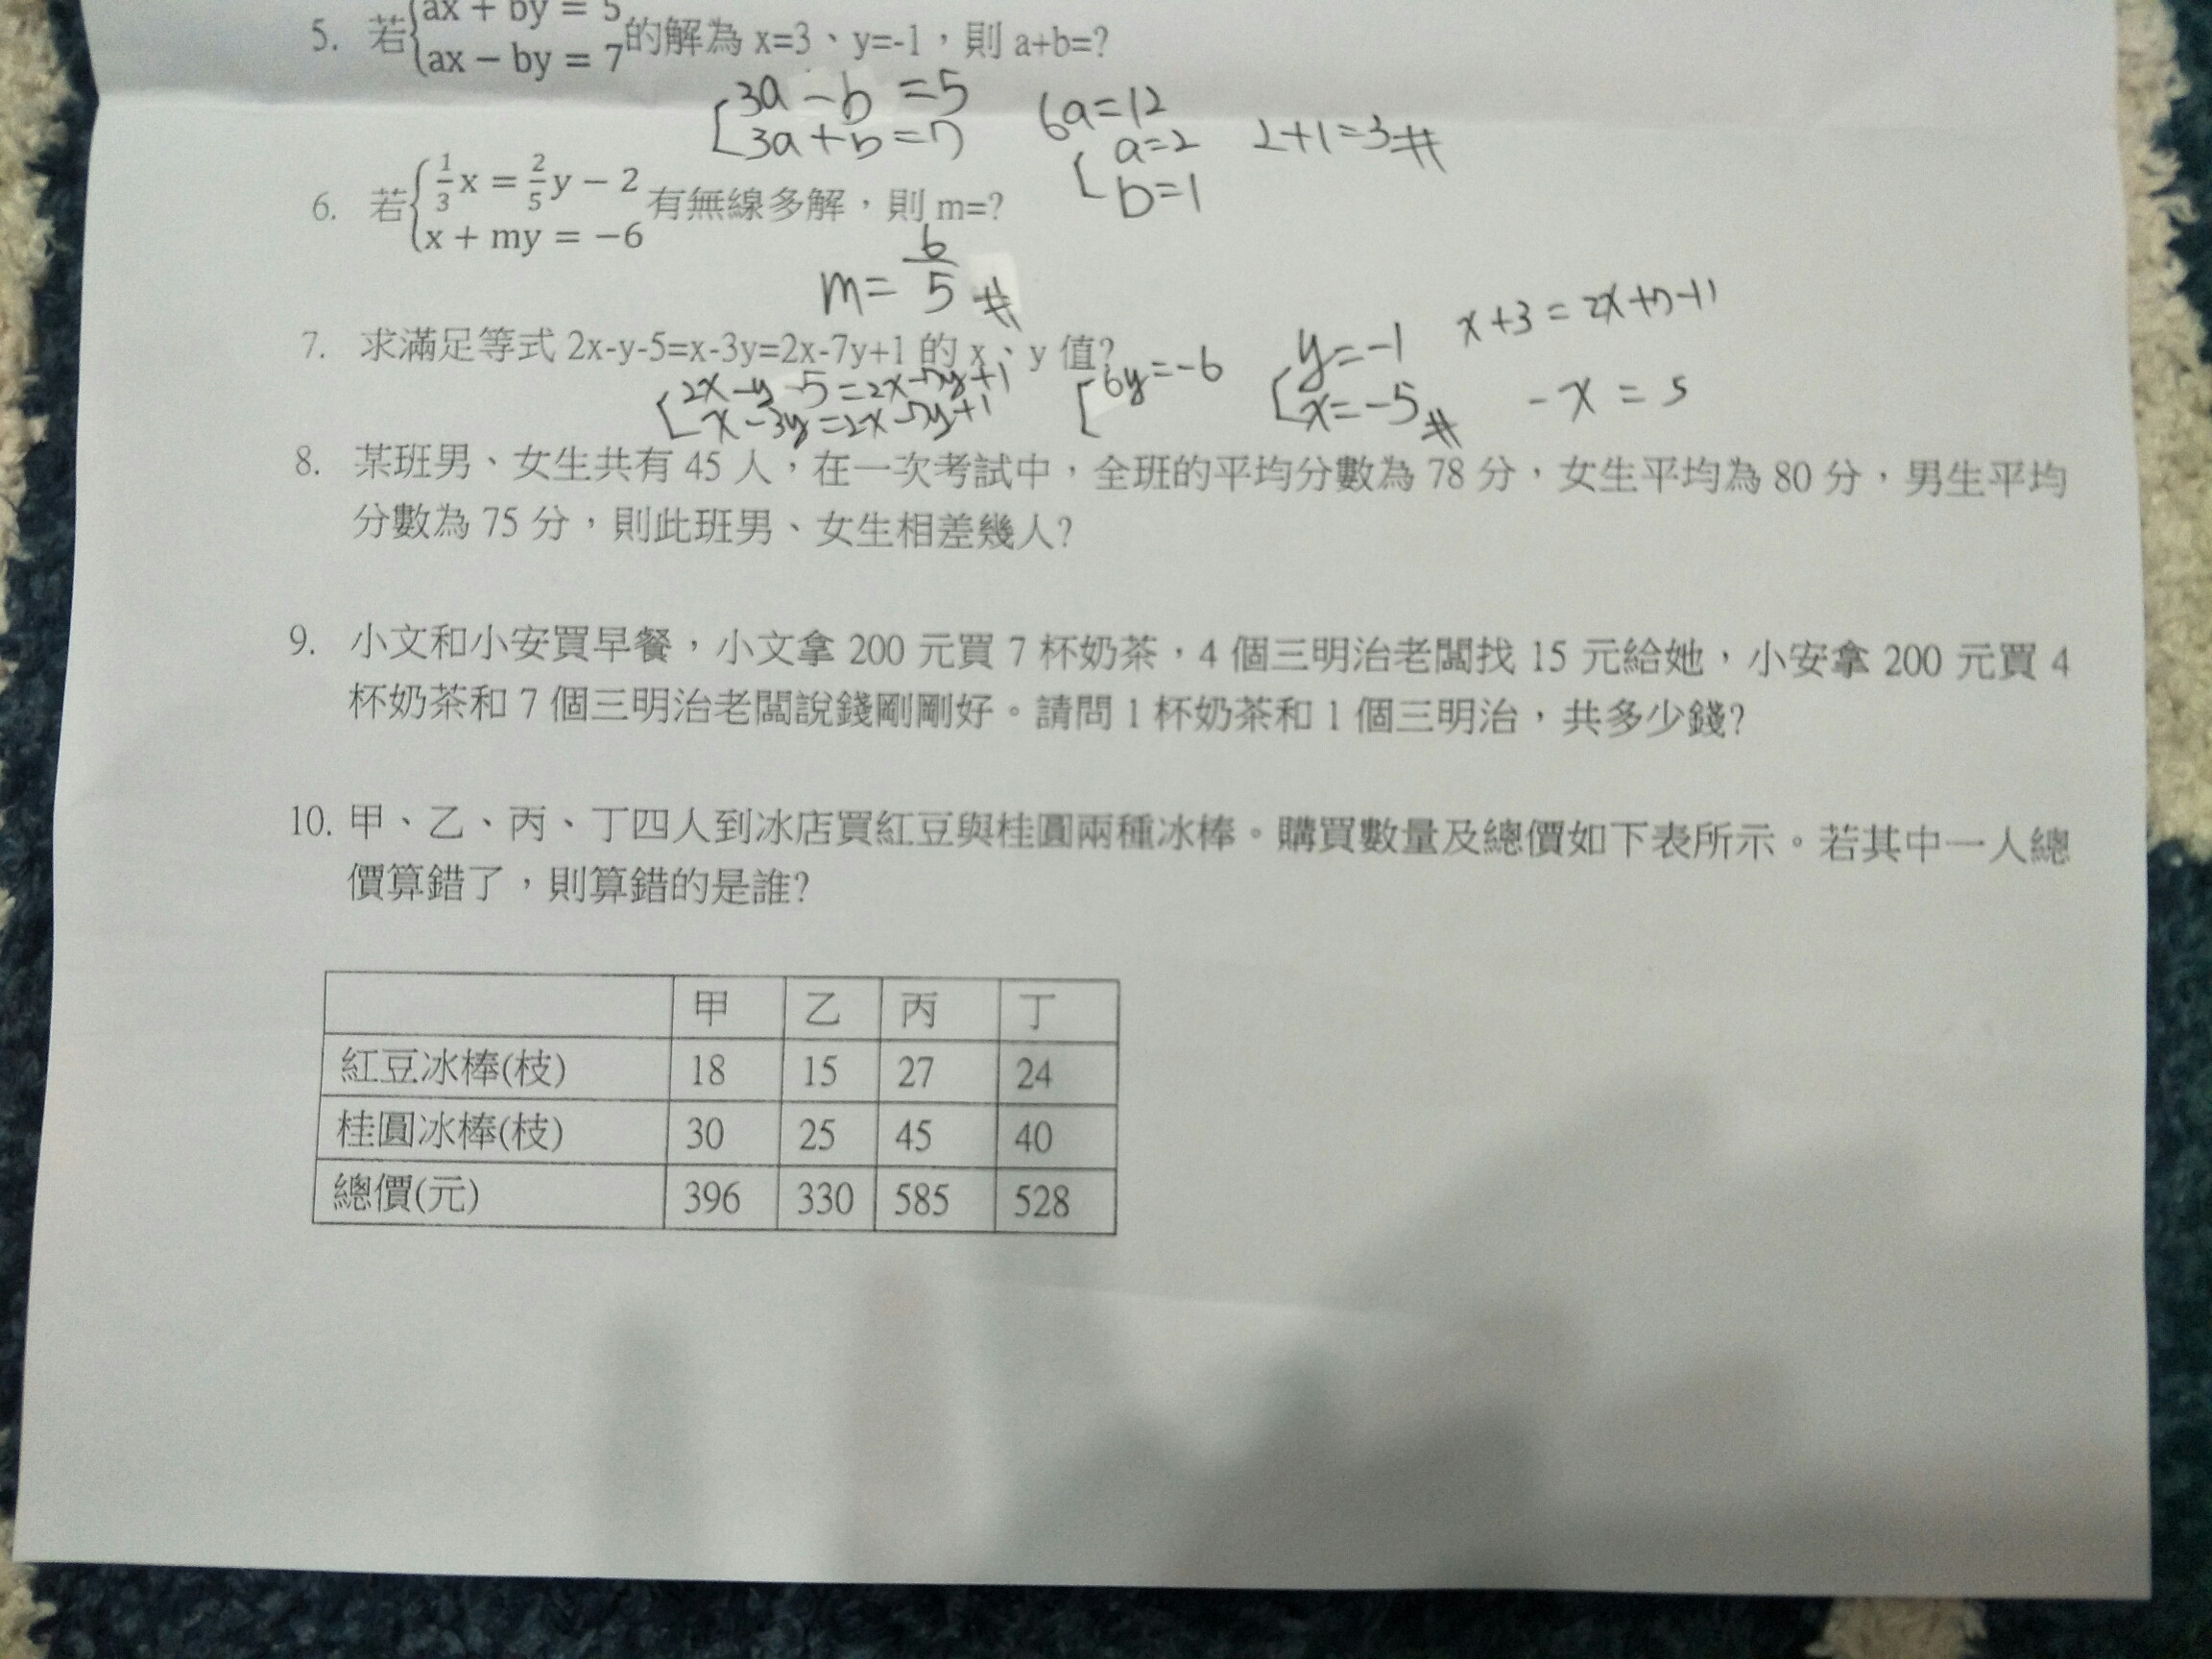 5. 若{ax + by = 5
ax − by = 7 的解為 x=3、y=-1，則 a+b=?
3a - b = 5
3a + b = 7
6a=12
a=2
b=1
2+1=3#
6. 若{1/3 x = 2/5 y − 2
x + my = −6 有無線多解，則 m=?
m= 6/5 #
7. 求滿足等式 2x-y-5=x-3y=2x-7y+1 的 x、y 值?
2x-y-5=2x-7y+1
x-3y=2x-7y+1
6y=-6
y=-1
x=-5#
x+3=2x+7+1
-x = 5
8. 某班男、女生共有 45 人，在一次考試中，全班的平均分數為 78 分，女生平均為 80 分，男生平均
分數為 75 分，則此班男、女生相差幾人?
9. 小文和小安買早餐，小文拿 200 元買 7 杯奶茶，4 個三明治老闆找 15 元給她，小安拿 200 元買 4
杯奶茶和 7 個三明治老闆說錢剛剛好。請問 1 杯奶茶和 1 個三明治，共多少錢?
10. 甲、乙、丙、丁四人到冰店買紅豆與桂圓兩種冰棒。購買數量及總價如下表所示。若其中一人總
價算錯了，則算錯的是誰?
甲 乙 丙 丁
紅豆冰棒(枝) 18 15 27 24
桂圓冰棒(枝) 30 25 45 40
總價(元) 396 330 585 528